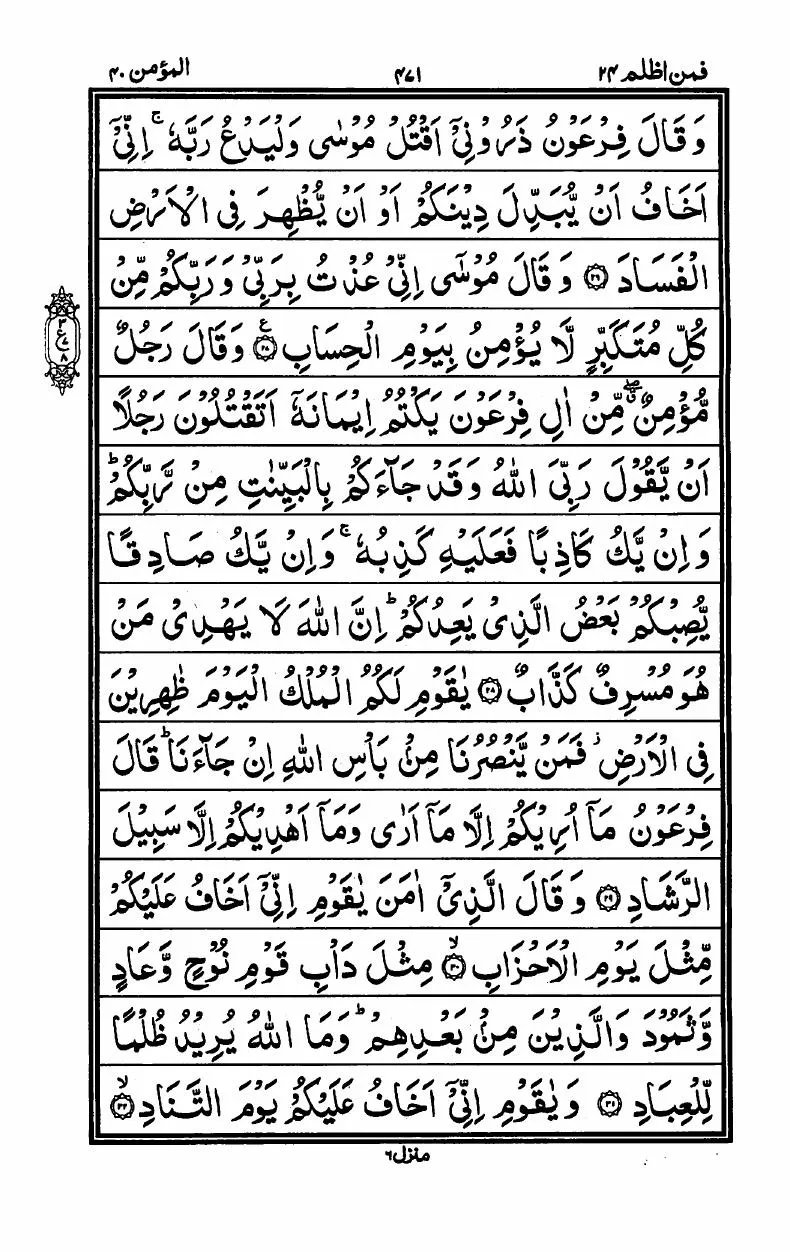 فمن اظلم ۲۴
۴۷۱
المؤمن ۴۰
وَ قَالَ فِرْعَوْنُ ذَرُوْنِیْۤ اَقْتُلْ مُوْسٰی وَلْیَدْعُ رَبَّهٗ ۚ اِنِّیْۤ
اَخَافُ اَنْ یُّبَدِّلَ دِیْنَكُمْ اَوْ اَنْ یُّظْهِرَ فِی الْاَرْضِ
الْفَسَادَ ﴿۲۶﴾ وَ قَالَ مُوْسٰۤی اِنِّیْ عُذْتُ بِرَبِّیْ وَ رَبِّكُمْ مِّنْ
كُلِّ مُتَكَبِّرٍ لَّا یُؤْمِنُ بِیَوْمِ الْحِسَابِ ﴿۲۷﴾ ع وَ قَالَ رَجُلٌ
مُّؤْمِنٌ ۖق مِّنْ اٰلِ فِرْعَوْنَ یَكْتُمُ اِیْمَانَهٗۤ اَتَقْتُلُوْنَ رَجُلًا
اَنْ یَّقُوْلَ رَبِّیَ اللّٰهُ وَ قَدْ جَآءَكُمْ بِالْبَیِّنٰتِ مِنْ رَّبِّكُمْ ؕ
وَ اِنْ یَّكُ كَاذِبًا فَعَلَیْهِ كَذِبُهٗ ۚ وَ اِنْ یَّكُ صَادِقًا
یُّصِبْكُمْ بَعْضُ الَّذِیْ یَعِدُكُمْ ؕ اِنَّ اللّٰهَ لَا یَهْدِیْ مَنْ
هُوَ مُسْرِفٌ كَذَّابٌ ﴿۲۸﴾ یٰقَوْمِ لَكُمُ الْمُلْكُ الْیَوْمَ ظٰهِرِیْنَ
فِی الْاَرْضِ ؗ فَمَنْ یَّنْصُرُنَا مِنْۢ بَاْسِ اللّٰهِ اِنْ جَآءَنَا ؕ قَالَ
فِرْعَوْنُ مَاۤ اُرِیْكُمْ اِلَّا مَاۤ اَرٰی وَ مَاۤ اَهْدِیْكُمْ اِلَّا سَبِیْلَ
الرَّشَادِ ﴿۲۹﴾ وَ قَالَ الَّذِیْۤ اٰمَنَ یٰقَوْمِ اِنِّیْۤ اَخَافُ عَلَیْكُمْ
مِّثْلَ یَوْمِ الْاَحْزَابِ ﴿۳۰﴾ ۙ مِثْلَ دَاْبِ قَوْمِ نُوْحٍ وَّ عَادٍ
وَّ ثَمُوْدَ وَ الَّذِیْنَ مِنْۢ بَعْدِهِمْ ؕ وَ مَا اللّٰهُ یُرِیْدُ ظُلْمًا
لِّلْعِبَادِ ﴿۳۱﴾ وَ یٰقَوْمِ اِنِّیْۤ اَخَافُ عَلَیْكُمْ یَوْمَ التَّنَادِ ﴿۳۲﴾ ۙ
۳ ع ۷ ۸
منزل ۶